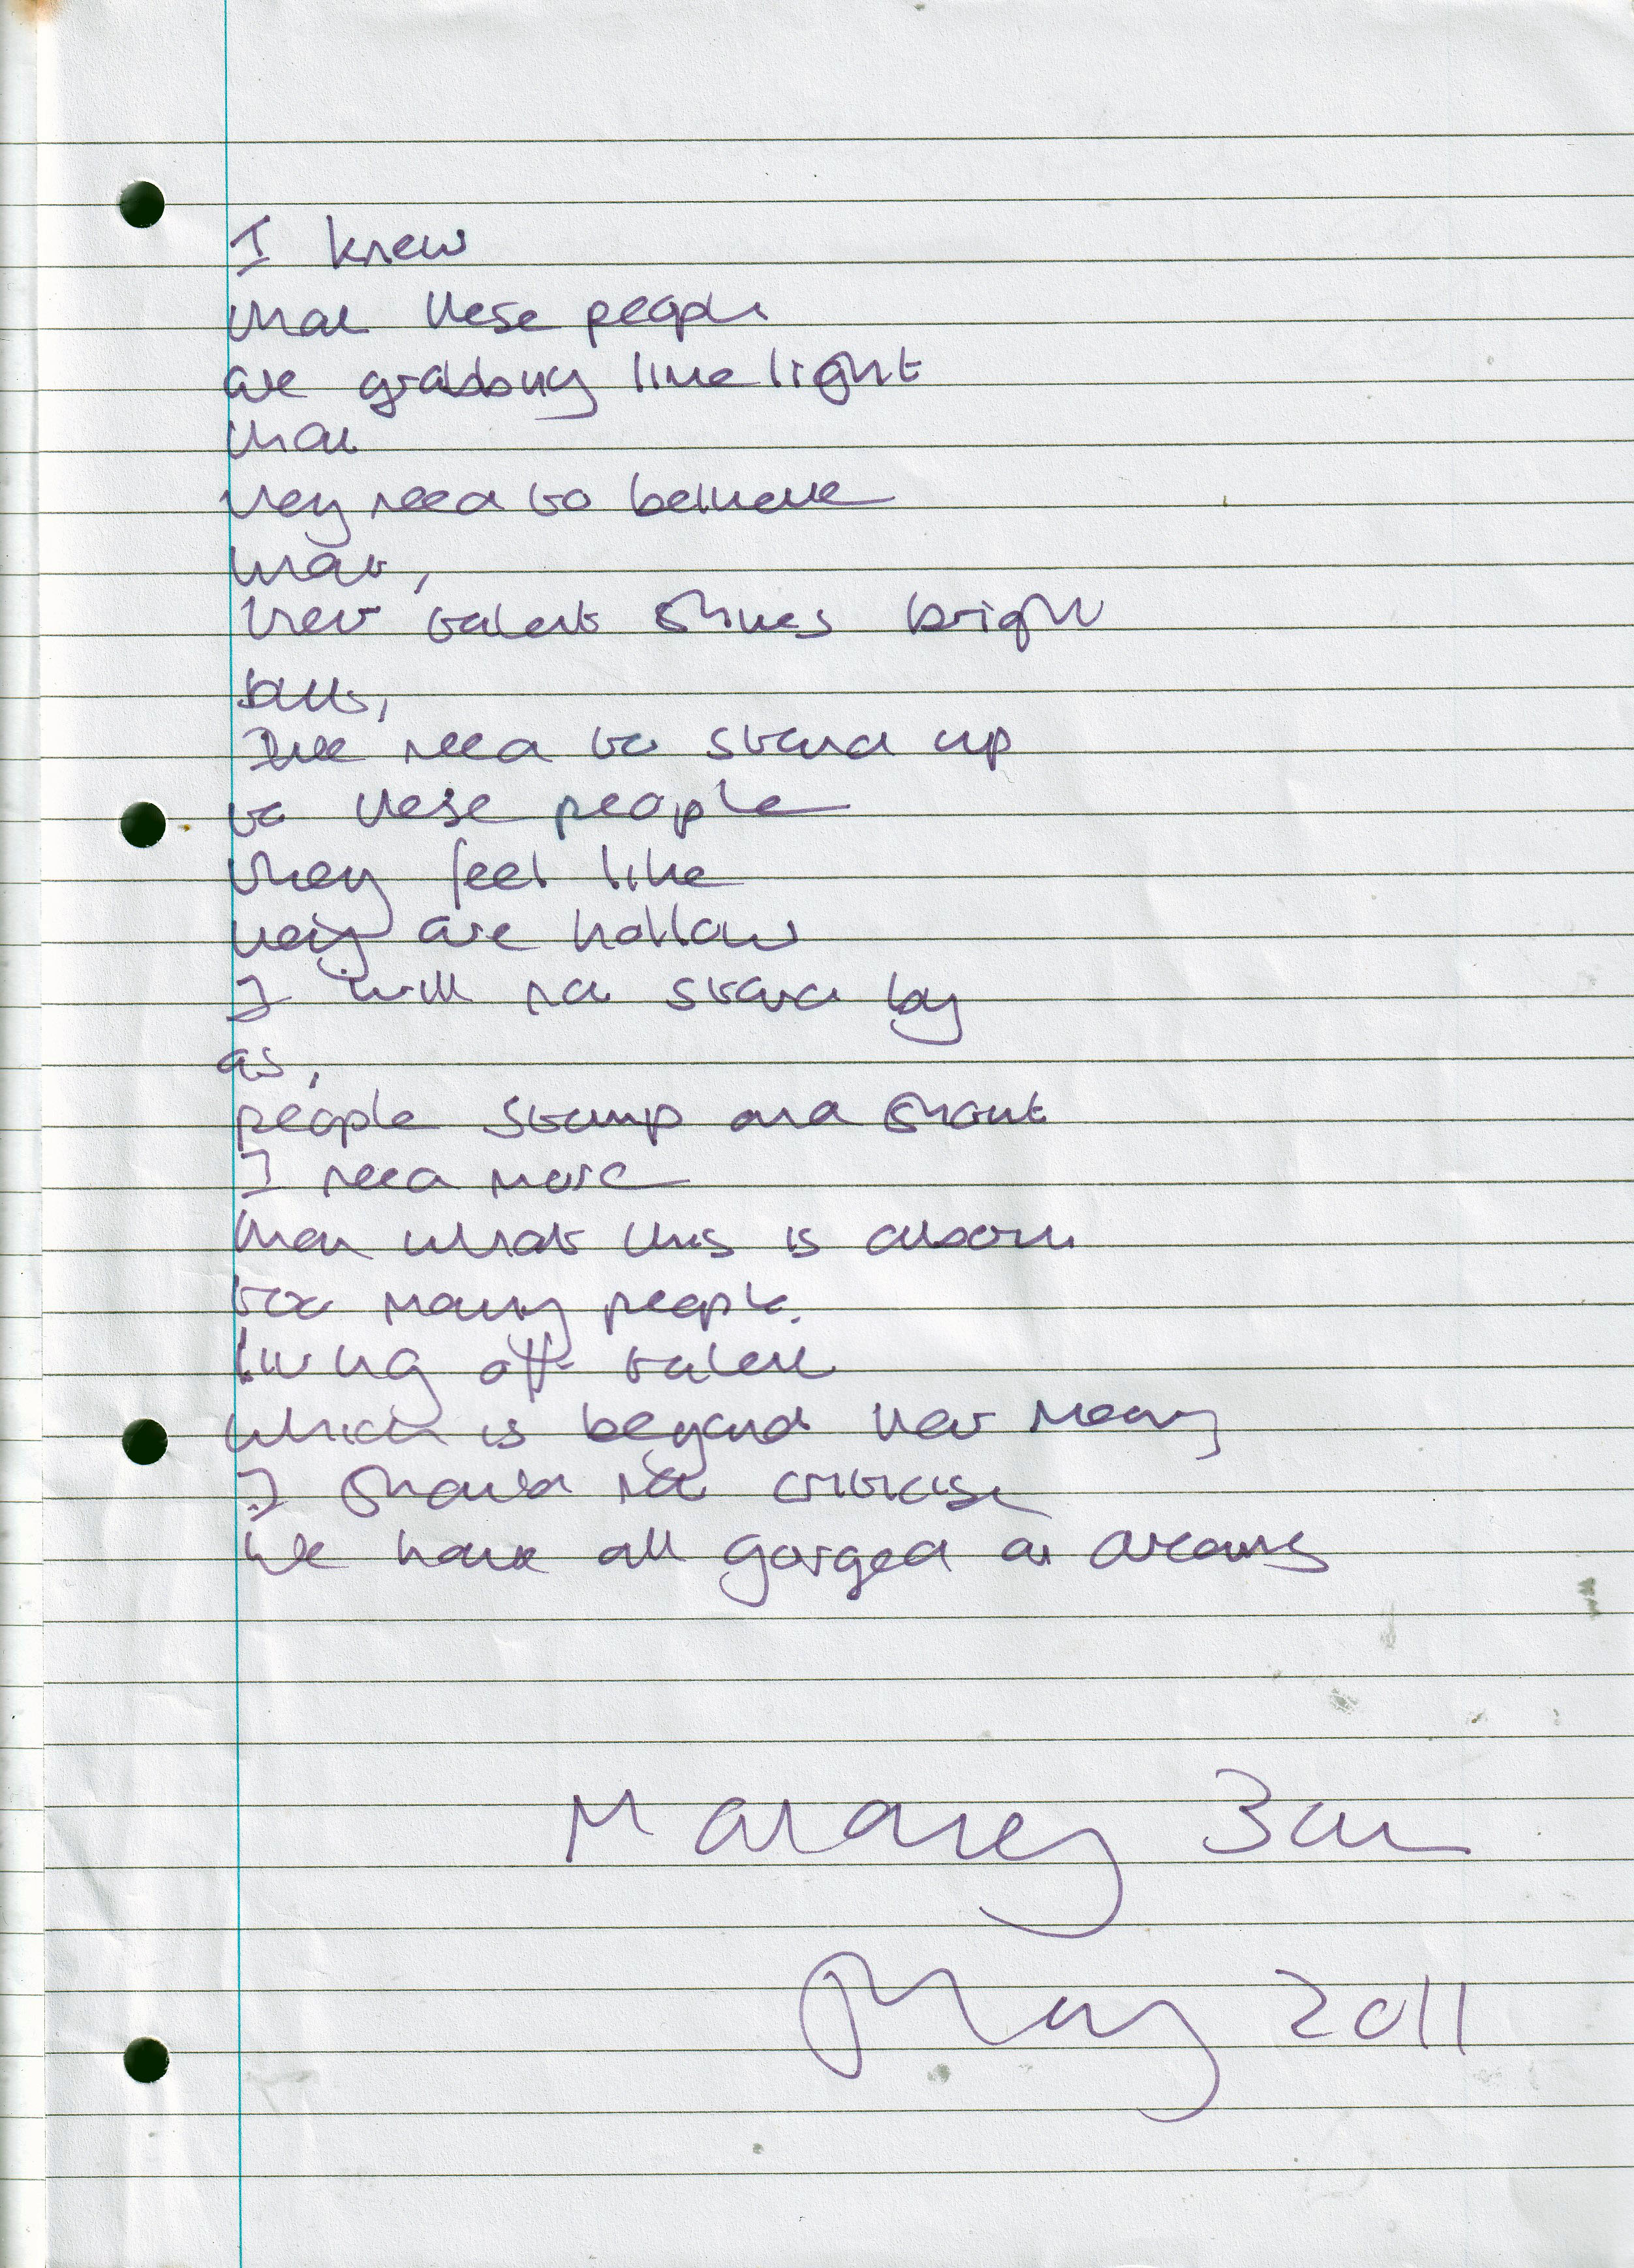 I knew
that these people
are grabbing lime light
that
they need to believe
that,
their talent shines bright
but,
We need to stand up
to these people
they feel like
they are hollow
I will not stand by
as,
people stamp and shout
I need more
than what this is about
too many people
living off talent
which is beyond their
I should not criticise
We have all gorged at dreams
May 2011